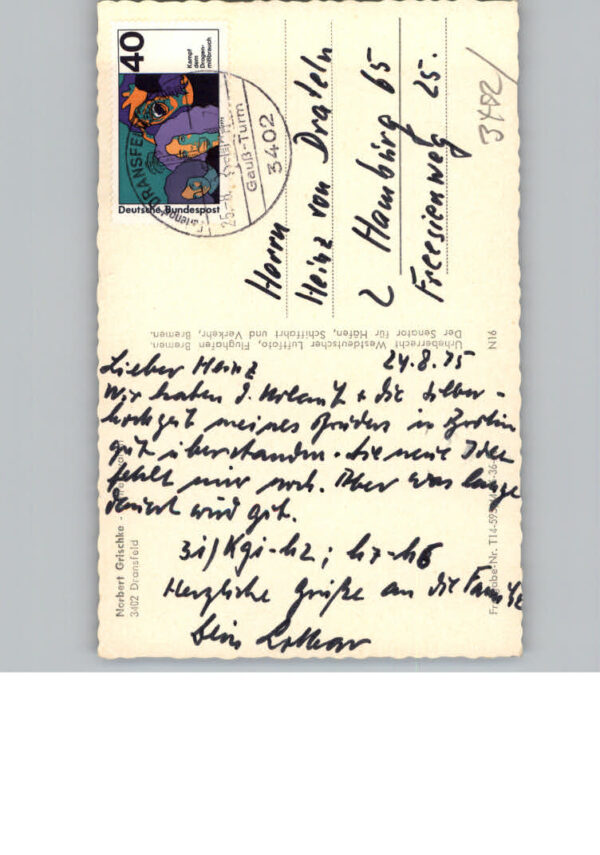 40
Kampf
dem
Drogen-
mißbrauch
Deutsche Bundespost
DRANSFELD
Gauß-Turm
3402
3402/
Herrn
Heinz von Drateln
2 Hamburg 65
Freesienweg 25.
Urheberrecht Westdeutscher Luftfoto, Flughafen Bremen.
Der Senator für Häfen, Schiffahrt und Verkehr, Bremen.
N16
24.8.75
Lieber Heinz
Wir haben d. Urlaub + die Silber-
hochzeit meines Bruders in Berlin
gut überstanden. Die neue Idee
fehlt mir noch. Aber was lange
dauert wird gut.
3i) Kg1-h2; h7-h6
Herzliche Grüße an die Familie
Dein Lothar
Norbert Grischke -
3402 Dransfeld